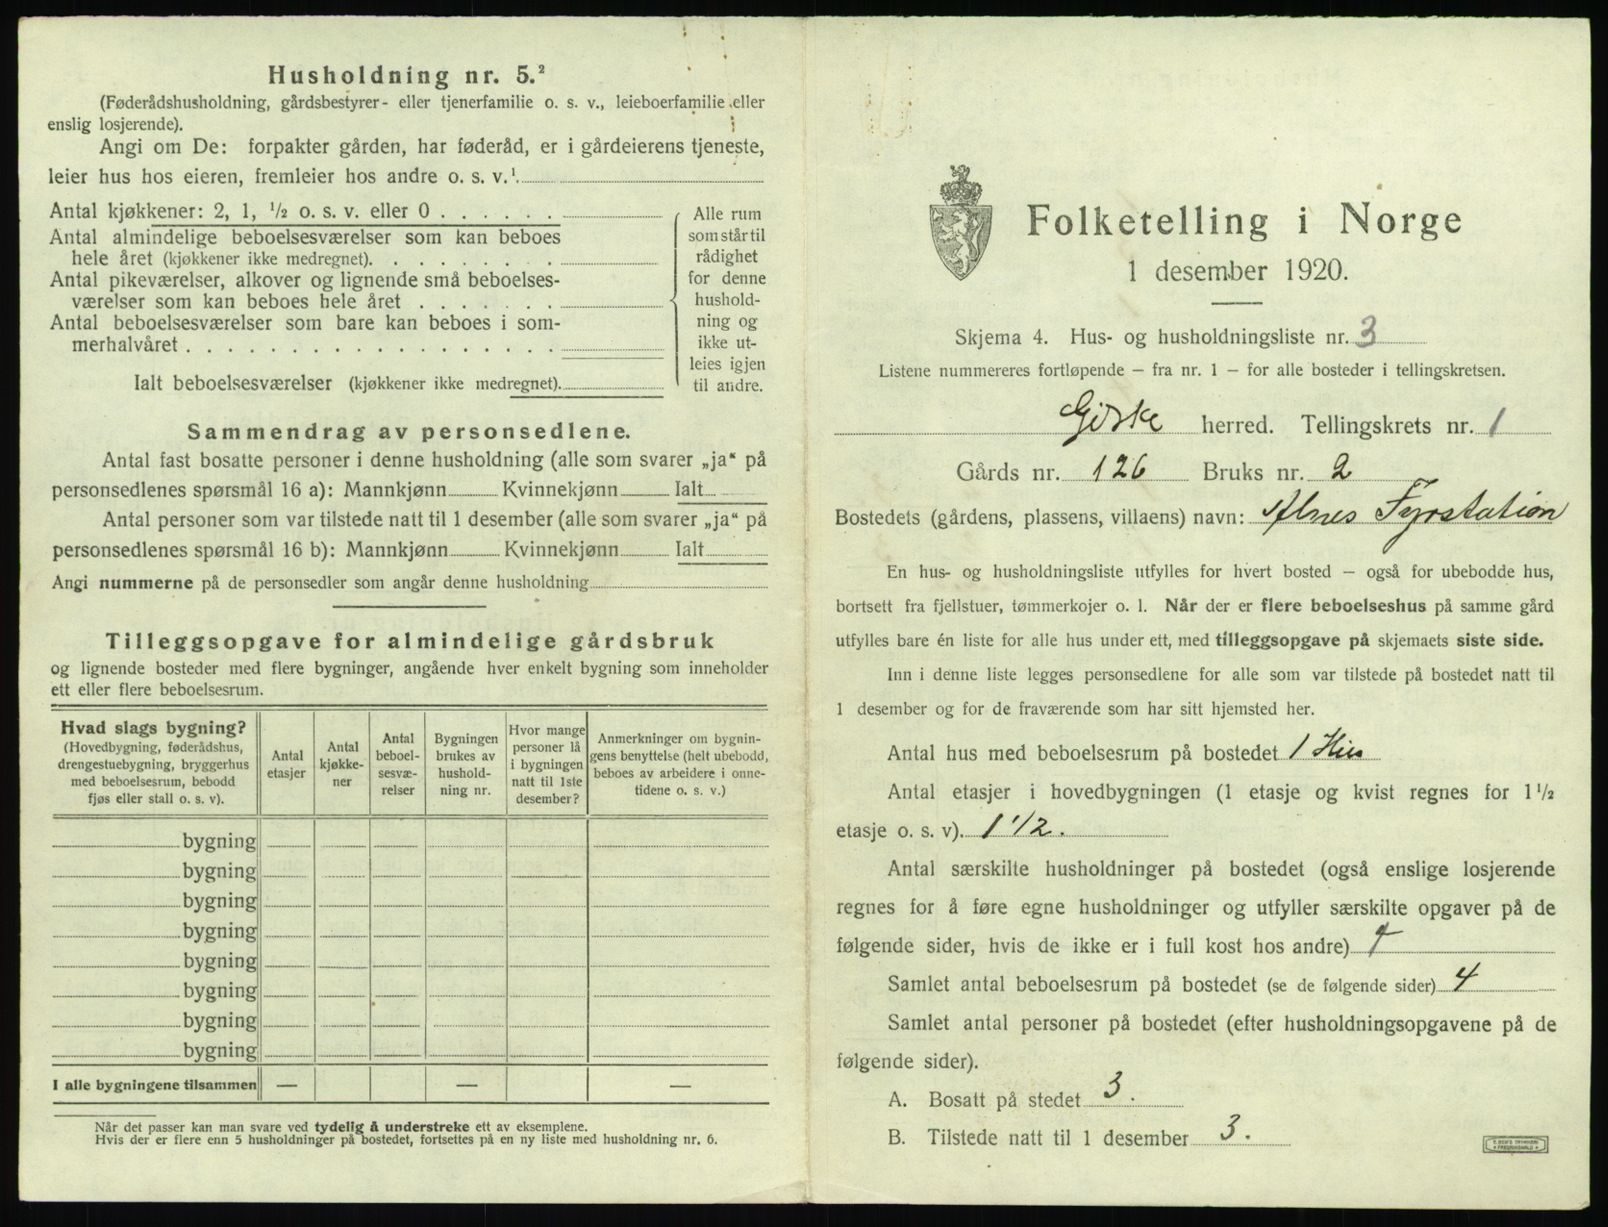 Husholdning nr. 5.²
(Føderådshusholdning, gårdsbestyrer- eller tjenerfamilie o. s. v., leieboerfamilie eller
enslig losjerende).
Angi om De: forpakter gården, har føderåd, er i gårdeierens tjeneste,
leier hus hos eieren, fremleier hos andre o. s. v.¹
Antal kjøkkener: 2, 1, ½ o. s. v. eller 0
Antal almindelige beboelsesværelser som kan beboes
hele året (kjøkkener ikke medregnet).
Antal pikeværelser, alkover og lignende små beboelses-
værelser som kan beboes hele året
Antal beboelsesværelser som bare kan beboes i som-
merhalvåret
Ialt beboelsesværelser (kjøkkener ikke medregnet).
Alle rum
som står til
rådighet
for denne
hushold-
ning og
ikke ut-
leies igjen
til andre.
Sammendrag av personsedlene.
Antal fast bosatte personer i denne husholdning (alle som svarer „ja“ på
personsedlenes spørsmål 16 a): Mannkjønn Kvinnekjønn Ialt
Antal personer som var tilstede natt til 1 desember (alle som svarer „ja“ på
personsedlenes spørsmål 16 b): Mannkjønn Kvinnekjønn Ialt
Angi nummerne på de personsedler som angår denne husholdning
Tilleggsopgave for almindelige gårdsbruk
og lignende bosteder med flere bygninger, angående hver enkelt bygning som inneholder
ett eller flere beboelsesrum.
Hvad slags bygning?
(Hovedbygning, føderådshus,
drengestuebygning, bryggerhus
med beboelsesrum, bebodd
fjøs eller stall o. s. v).
Antal
etasjer
Antal
kjøkke-
ner
Antal
beboel-
sesvæ-
relser
Bygningen
brukes av
hushold-
ning nr.
Hvor mange
personer lå
i bygningen
natt til 1ste
desember?
Anmerkninger om bygnin-
gens benyttelse (helt ubebodd,
beboes av arbeidere i onne-
tidene o. s. v.)
bygning
bygning
bygning
bygning
bygning
bygning
bygning
bygning
I alle bygningene tilsammen — — —
Når det passer kan man svare ved tydelig å understreke ett av eksemplene.
Hvis der er flere enn 5 husholdninger på bostedet, fortsettes på en ny liste med husholdning nr. 6.
Folketelling i Norge
1 desember 1920.
Skjema 4. Hus- og husholdningsliste nr. 3
Listene nummereres fortløpende — fra nr. 1 — for alle bosteder i tellingskretsen.
Giske herred. Tellingskrets nr. 1
Gårds nr. 126 Bruks nr. 2
Bostedets (gårdens, plassens, villaens) navn: Alnes Fyrstation
En hus- og husholdningsliste utfylles for hvert bosted — også for ubebodde hus,
bortsett fra fjellstuer, tømmerkojer o. l. Når der er flere beboelseshus på samme gård
utfylles bare én liste for alle hus under ett, med tilleggsopgave på skjemaets siste side.
Inn i denne liste legges personsedlene for alle som var tilstede på bostedet natt til
1 desember og for de fraværende som har sitt hjemsted her.
Antal hus med beboelsesrum på bostedet 1 Hus
Antal etasjer i hovedbygningen (1 etasje og kvist regnes for 1½
etasje o. s. v). 1 1/2.
Antal særskilte husholdninger på bostedet (også enslige losjerende
regnes for å føre egne husholdninger og utfyller særskilte opgaver på de
følgende sider, hvis de ikke er i full kost hos andre)
Samlet antal beboelsesrum på bostedet (se de følgende sider) 4
Samlet antal personer på bostedet (efter husholdningsopgavene på de
følgende sider).
A. Bosatt på stedet 3.
B. Tilstede natt til 1 desember 3.